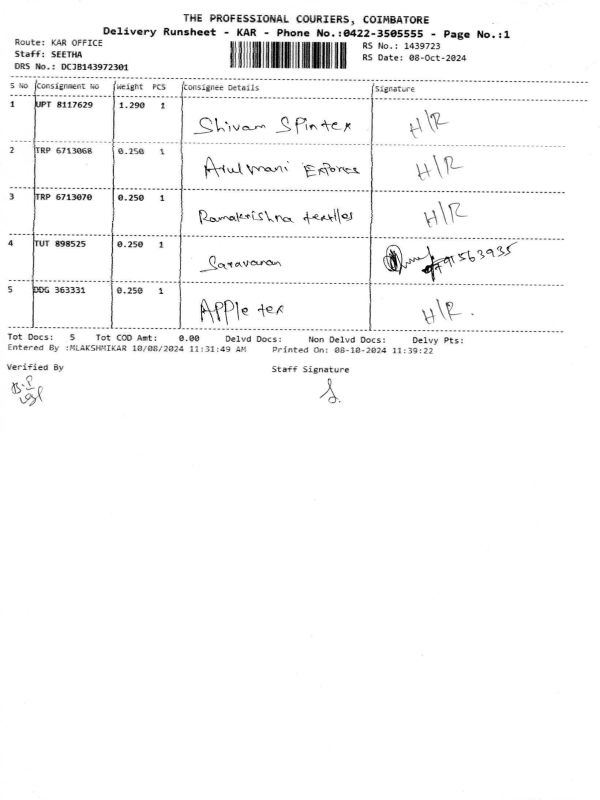 THE PROFESSIONAL COURIERS, COIMBATORE
Delivery Runsheet - KAR - Phone No.:0422-3505555 - Page No.:1
Route: KAR OFFICE RS No.: 1439723
Staff: SEETHA RS Date: 08-Oct-2024
DRS No.: DCJB143972301
S No Consignment No Weight PCS Consignee Details Signature
1 UPT 8117629 1.290 1 Shivam Spintex H/R
2 TRP 6713068 0.250 1 Arulmani Exports H/R
3 TRP 6713070 0.250 1 Ramakrishna textiles H/R
4 TUT 898525 0.250 1 Saravanan
5 DDG 363331 0.250 1 APPle tex H/R.
Tot Docs: 5 Tot COD Amt: 0.00 Delvd Docs: Non Delvd Docs: Delvy Pts:
Entered By :MLAKSHMIKAR 10/08/2024 11:31:49 AM Printed On: 08-10-2024 11:39:22
Verified By Staff Signature